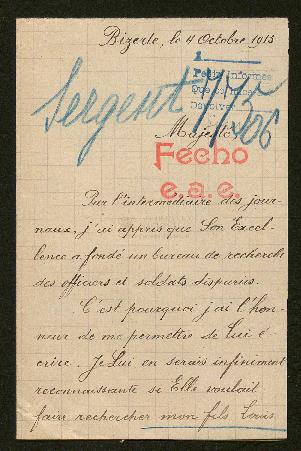 Bizerte, le 4 Octobre 1915
1
Pedir informes
Que
Devolver
Sergent
Majesté
Fecho
e.a.e.
Par l'intermédiaire des jour-
naux, j'ai appris que Son Excel-
lence a fondé un bureau de recherche
des officiers et soldats disparus.
C'est pourquoi j'ai l'hon-
neur de me permettre de Lui é-
crire. Je Lui en serais infiniment
reconnaissante si Elle voulait
faire rechercher mon fils Louis